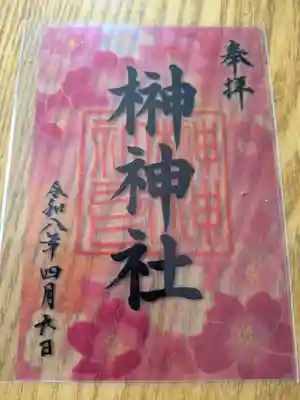 奉拝
榊神社
令和八年四月六日